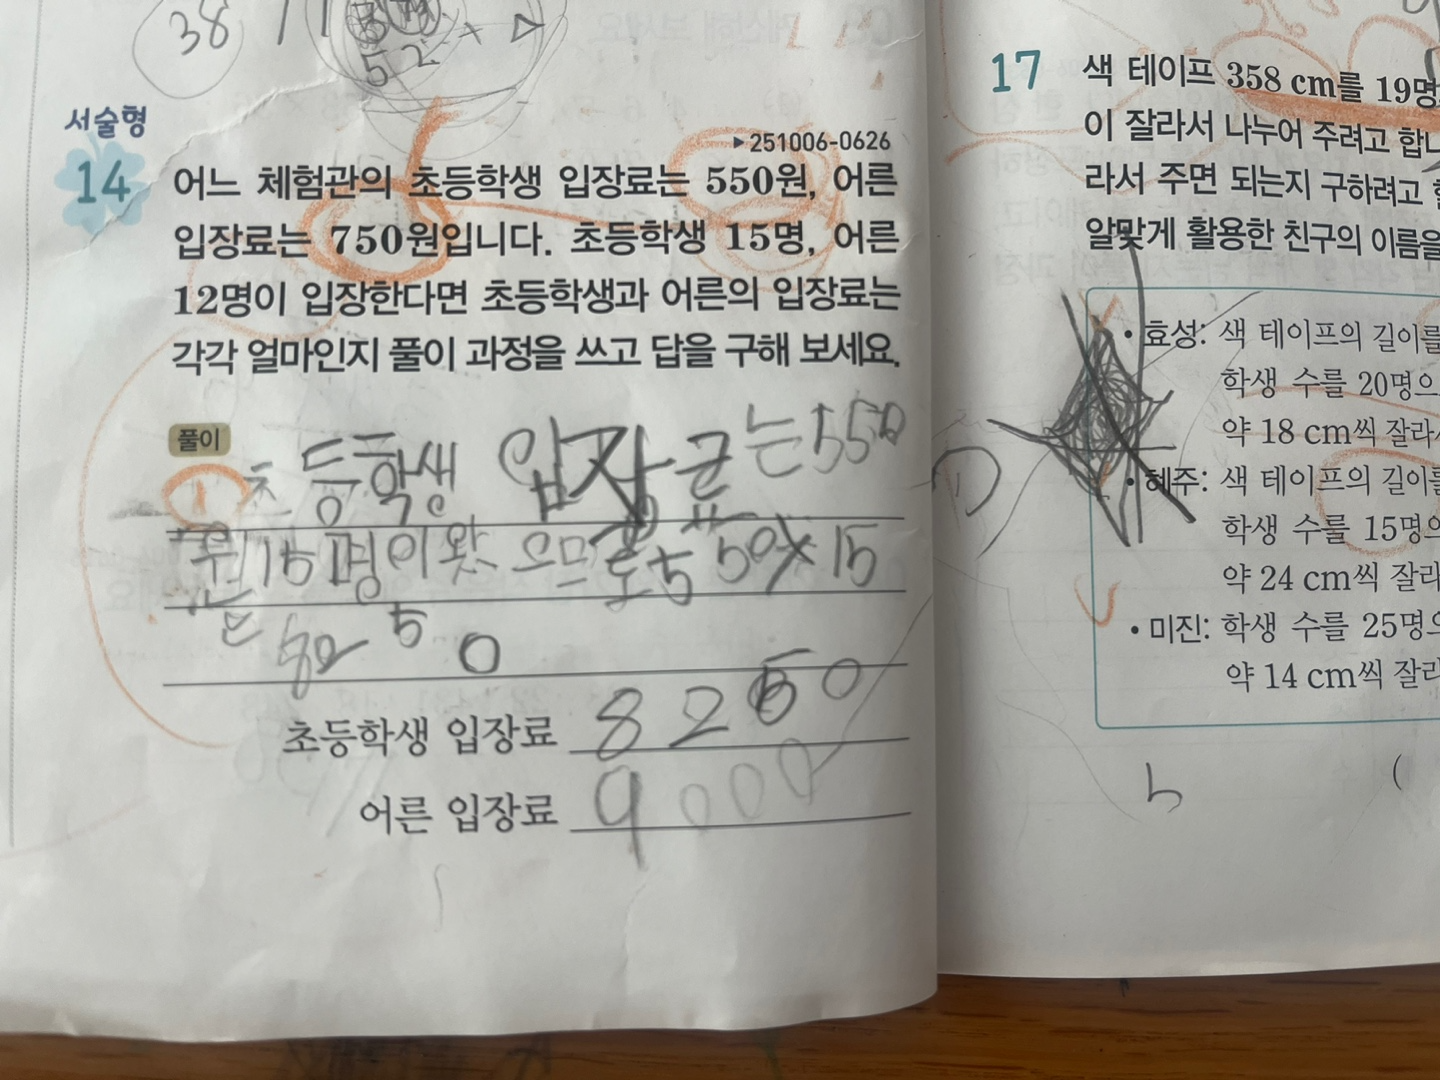 38
52
서술형
▶251006-0626
14 어느 체험관의 초등학생 입장료는 550원, 어른
입장료는 750원입니다. 초등학생 15명, 어른
12명이 입장한다면 초등학생과 어른의 입장료는
각각 얼마인지 풀이 과정을 쓰고 답을 구해 보세요.
풀이
1 초등학생 입장료는 550
원 15명이 왔으므로 550×15
는 8250
초등학생 입장료 8250
어른 입장료 9000
17 색 테이프 358 cm를 19명
이 잘라서 나누어 주려고 합니
라서 주면 되는지 구하려고
알맞게 활용한 친구의 이름을
• 효성: 색 테이프의 길이를
학생 수를 20명으
약 18 cm씩 잘라
• 혜주: 색 테이프의 길이를
학생 수를 15명으
약 24 cm씩 잘라
• 미진: 학생 수를 25명으
약 14 cm씩 잘라
(